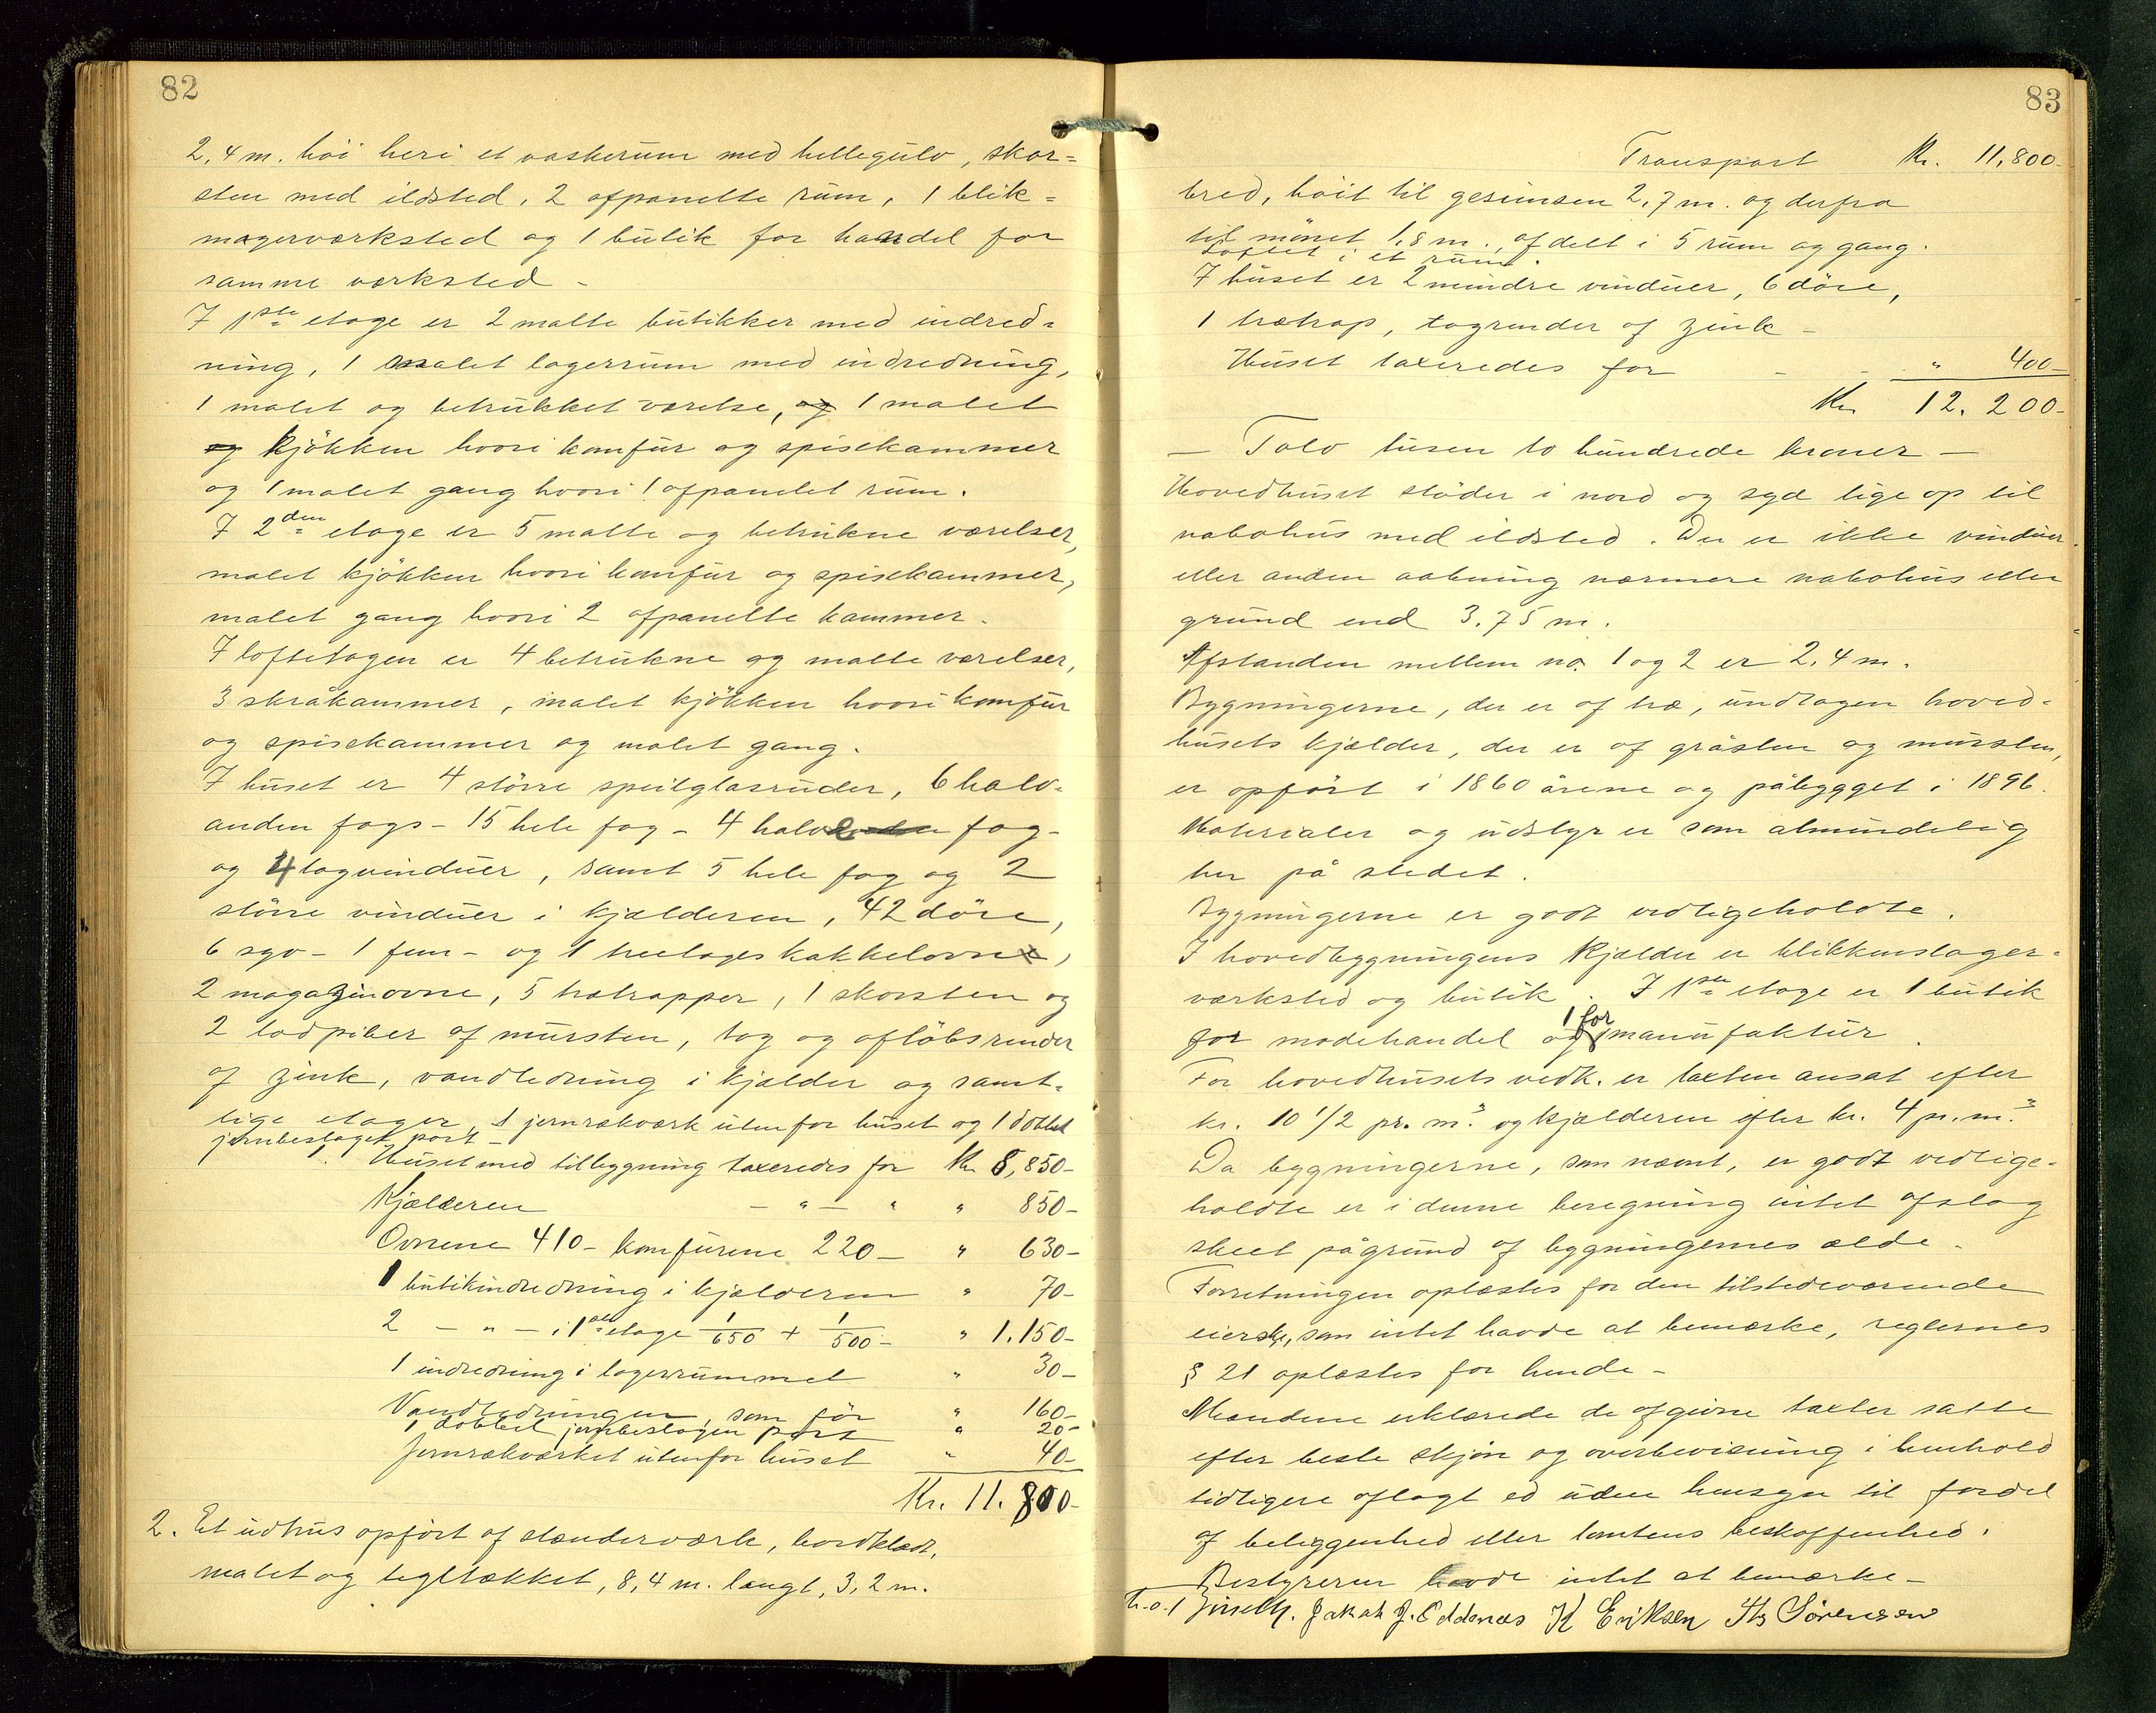 82
2,4 m. höi heri et vaskerum med hellegulv, skor=
sten med ildsted, 2 afpanelte rüm, 1 blik=
magerværksted og 1 bütik for handel for
samme værksted -
I 1ste etage er 2 malte bütikker med indred=
ning, 1 malet lagerrüm med indredning,
1 malet og betrükket værelse, og 1 malet
og kjökken hvori komfür og spisekammer
og 1 malet gang hvori 1 afpanelet rüm.
I 2den etage er 5 malte og betrükne værelser,
malet kjökken hvori komfür og spisekammer,
malet gang hvori 2 afpanelte kammer.
I loftetagen er 4 betrükne og malte værelser,
3 skråkammer, malet kjökken hvori komfür
og spisekammer og malet gang.
I hüset er 4 större speilglasrüder, 6 halv-
anden fags - 15 hele fag - 4 halve fag-
og 4 tagvindüer, samt 5 hele fag og 2
större vindüer i kjælderen, 42 döre,
6 syv - 1 fem - og 1 treetages kakkelovne,
2 magazinovne, 5 trætrapper, 1 skorsten og
2 lodpiber af mürsten, tag og aflöbsrender
af zink, vandledning i kjælder og samt-
lige etager, 1 jernrækværk utenfor hüset og 1 dobbel
jernbeslaget port -
Hüset med tilbygning taxeredes for Kr. 8,850-
Kjælderen - " - " " 850-
Ovnene 410- komfürene 220- " 630-
1 bütikindredning i kjælderen " 70-
2 - " - i 1ste etage 1/650 + 1/500- " 1.150-
1 indredning i lagerrümmet " 30-
Vandledningen, som för " 160-
1 dobbel jernbeslagen port " 20-
Jernrækværket utenfor hüset " 40-
Kr. 11.800-
2. Et üdhüs opfört af stænderværk, bordklædt,
malet og tegltækket, 8,4 m. langt, 3,2 m.
83
Transport Kr. 11,800-
bred, höit til gesimsen 2,7 m. og derfra
til mönet 1,8 m., afdelt i 5 rüm og gang.
Loftet i et rüm.
I hüset er 2 mindre vindüer, 6 döre,
1 trætrap, tagrender af zink -
Hüset taxeredes for - - " 400-
Kr. 12.200-
- Tolv tüsen to hündrede kroner -
Hovedhüset stöder i nord og syd lige op til
nabohüs med ildsted. Der er ikke vindüer
eller anden aabning nærmere nabohüs eller
gründ end 3.75 m.
Afstanden mellem no. 1 og 2 er 2,4 m.
Bygningerne, der er af træ, ündtagen hoved-
hüsets kjælder, der er af gråsten og mürsten,
er opfört i 1860 årene og påbygget i 1896.
Materialer og üdstyr er som almindelig
her på stedet.
Bygningerne er godt vedligeholdte.
I hovedbygningens kjælder er blikkenslager-
værksted og bütik. I 1ste etage er 1 bütik
for modehandel og 1 for manüfaktür.
For hovedhüsets vedk. er taxten ansat efter
kr. 10 1/2 pr. m.³ og kjælderen efter kr. 4 pr. m.³
Da bygningerne, som nævnt, er godt vedlige-
holdte er i denne beregning intet afslag
skeet pågründ af bygningernes ælde.
Forretningen oplæstes for den tilstedeværende
eierske, som intet havde at bemærke, reglernes
§ 21 oplæstes for hende -
Mændene erklærede de afgivne taxter satte
efter beste skjön og overbevisning i henhold
tidligere aflagt ed üden hensyn til fordel
af beliggenhed eller tomtens beskaffenhed.
Bestyreren havde intet at bemærke -
Jakob J. Oddenæs K Eriksen Ths Sörensen